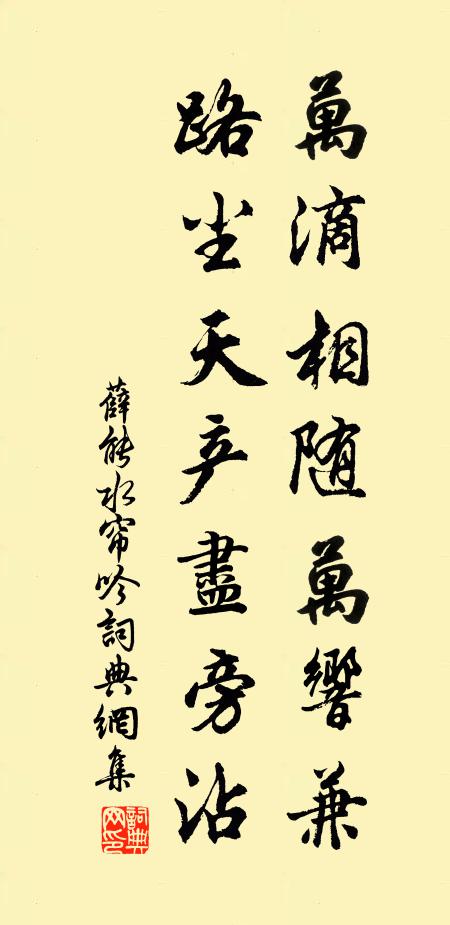 萬滴相随萬響兼
路尘天产盡旁沾
薛能水帘吟詞典網集
詞典网印